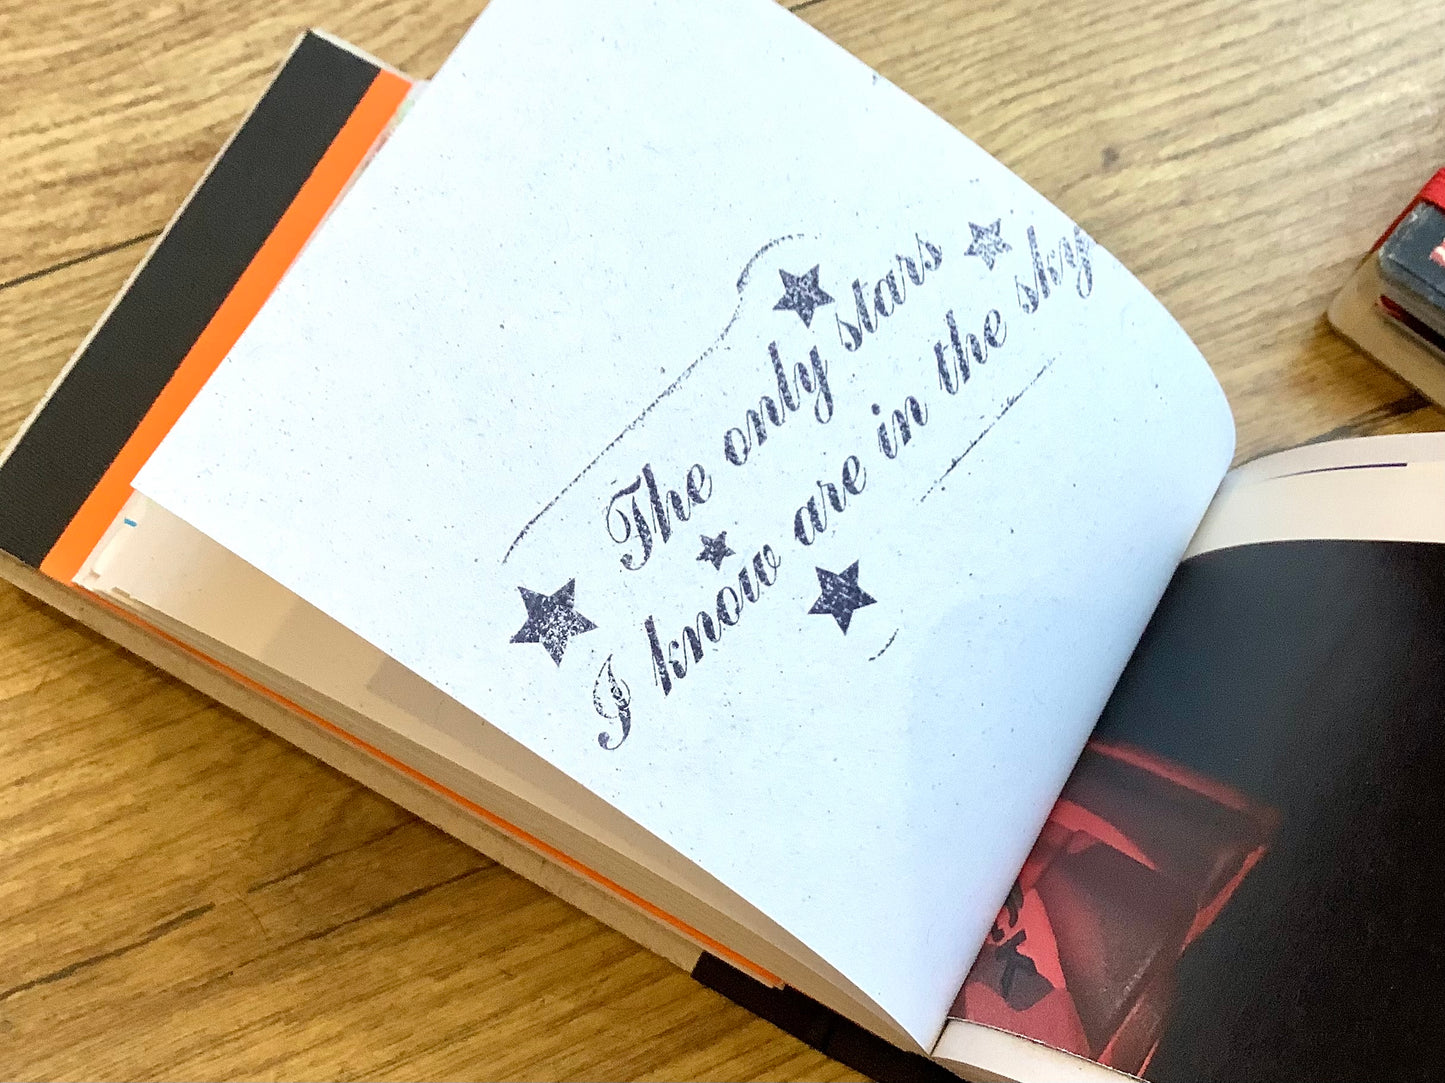 The only stars
I know are in the sky